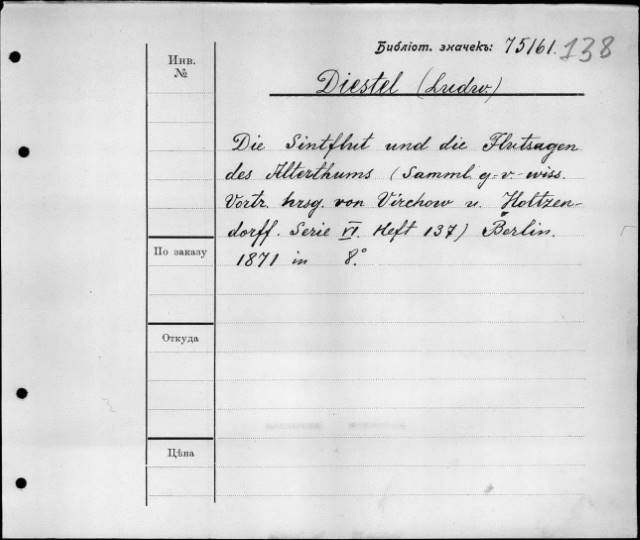 Библіот. значекъ: 75161. 138
Инв.
№
Diestel (Ludw.)
Die Sintflut und die Flutsagen
des Alterthums (Samml. g-v-wiss.
Vortr. hrsg. von Virchow u. Holtzen-
dorff. Serie VI. Heft 137) Berlin.
1871 in 8°.
По заказу
Откуда
Цѣна